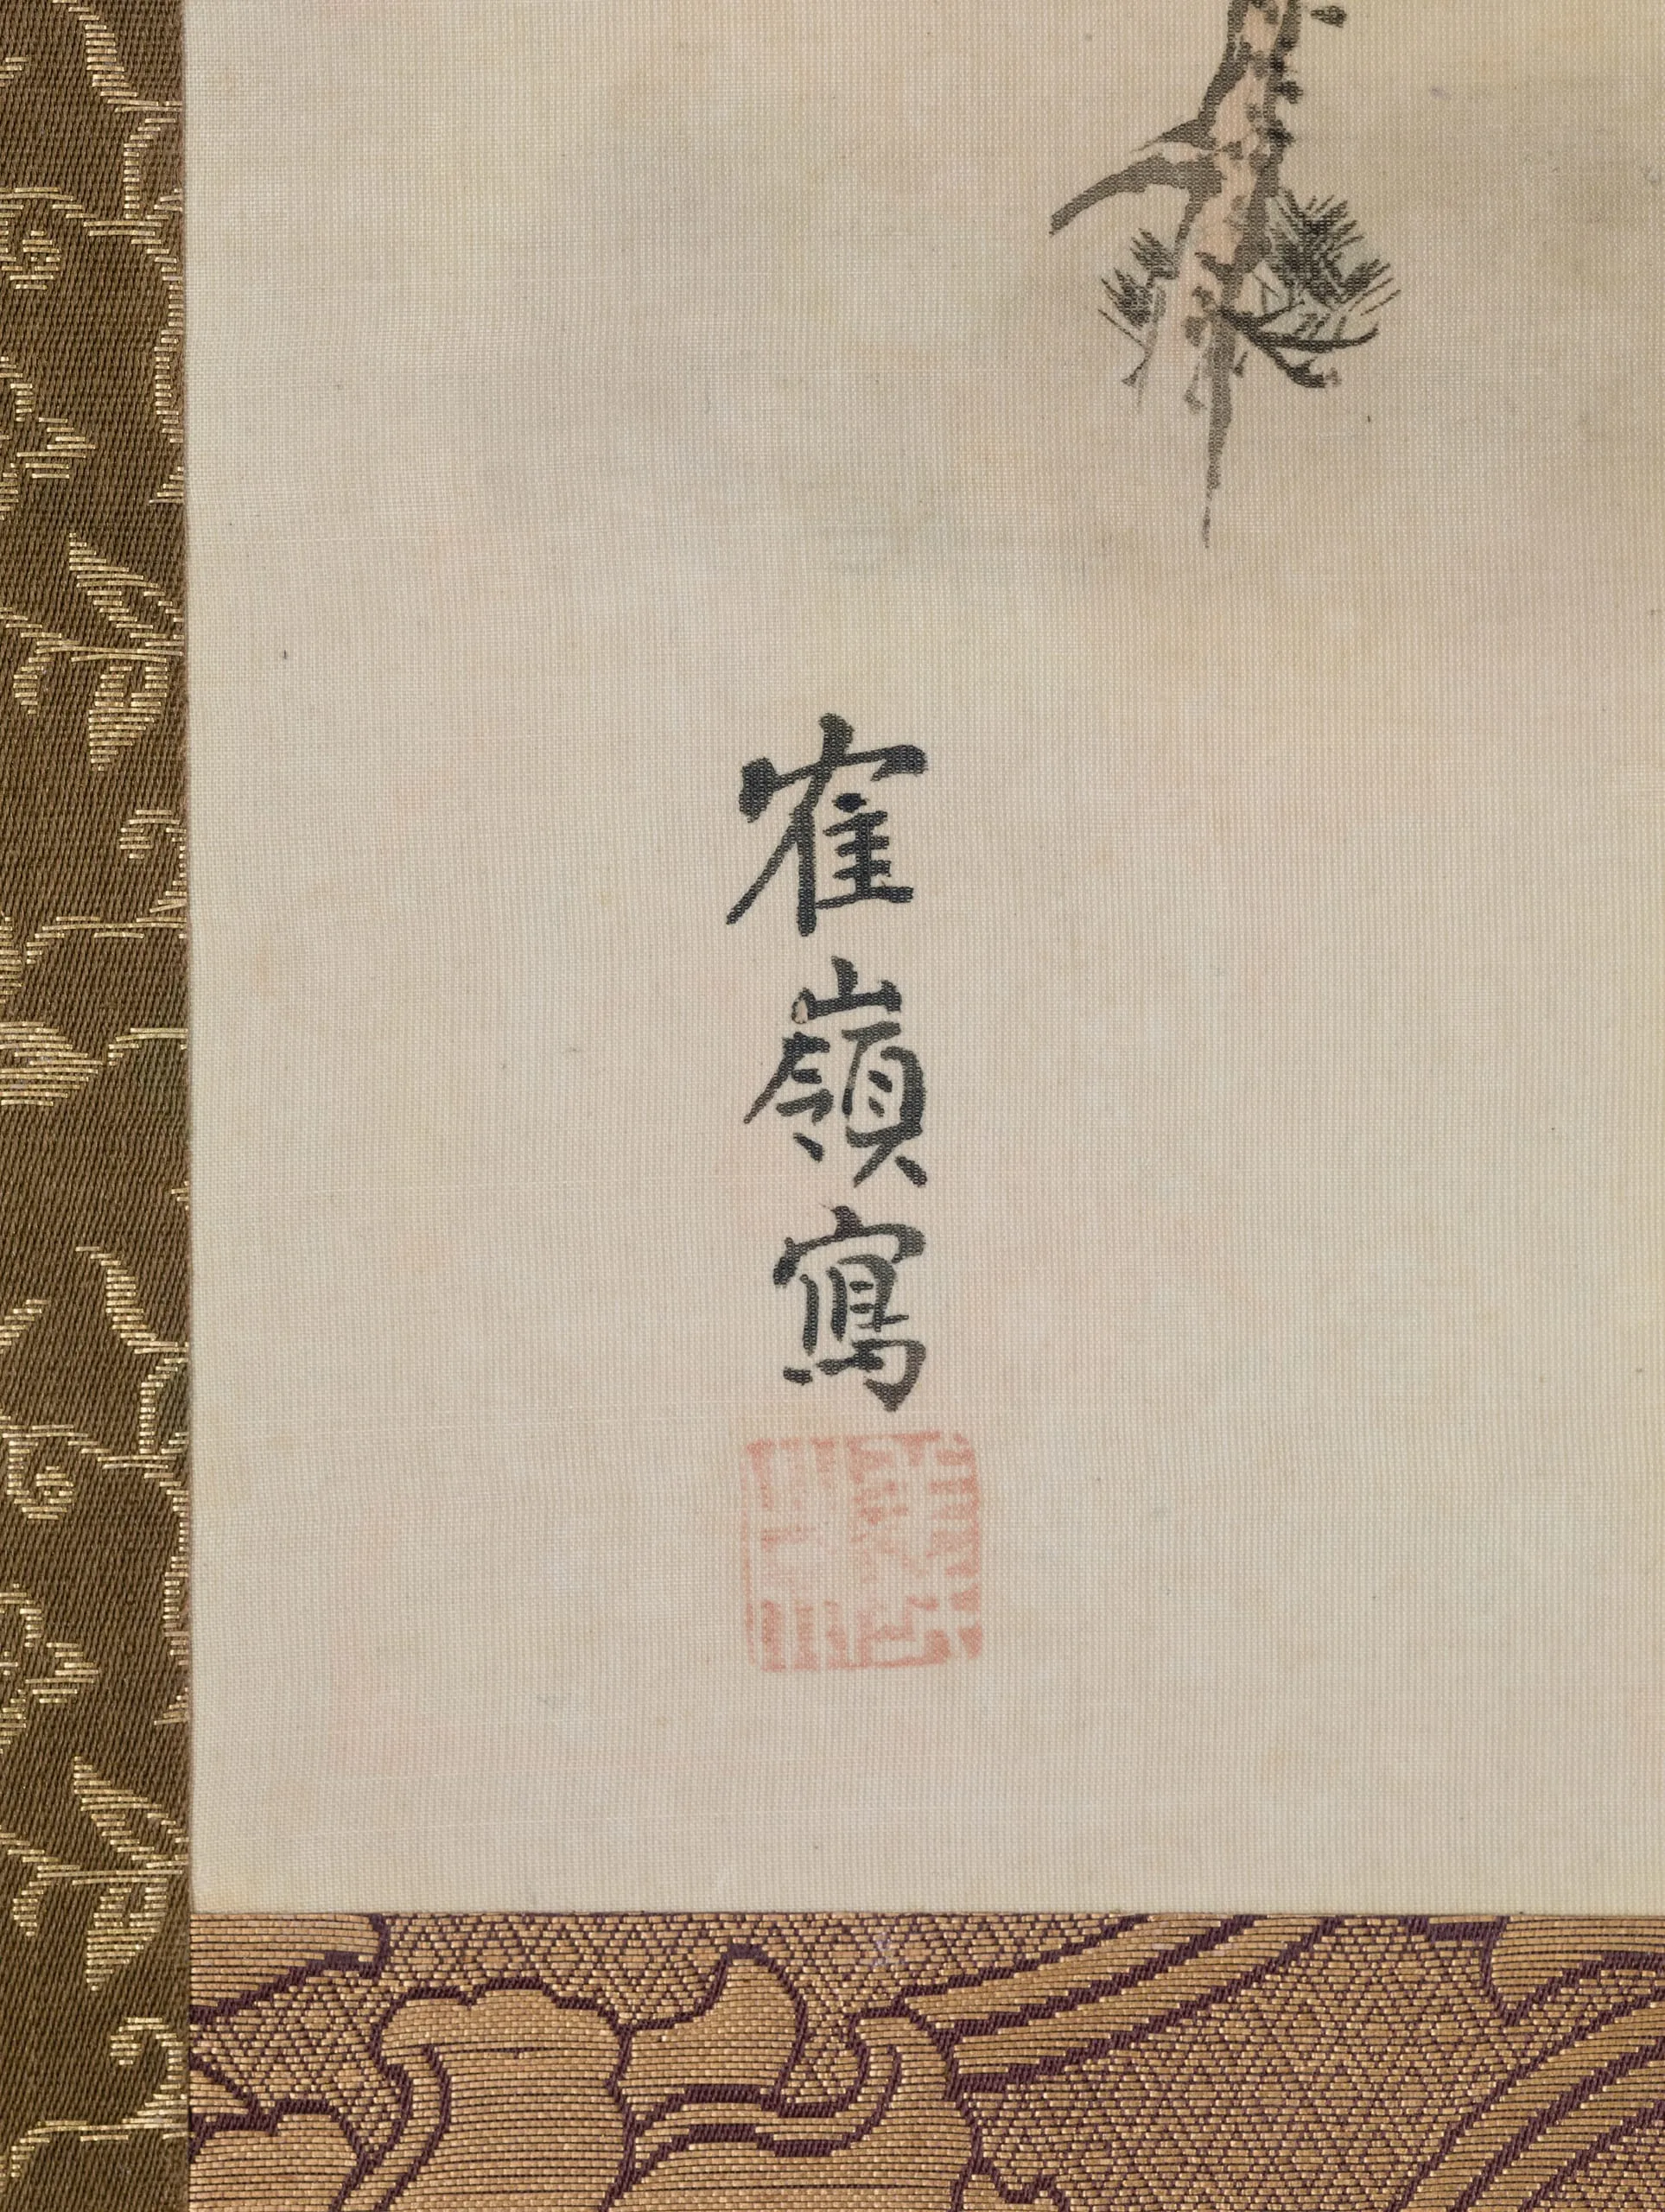 寉嶺寫